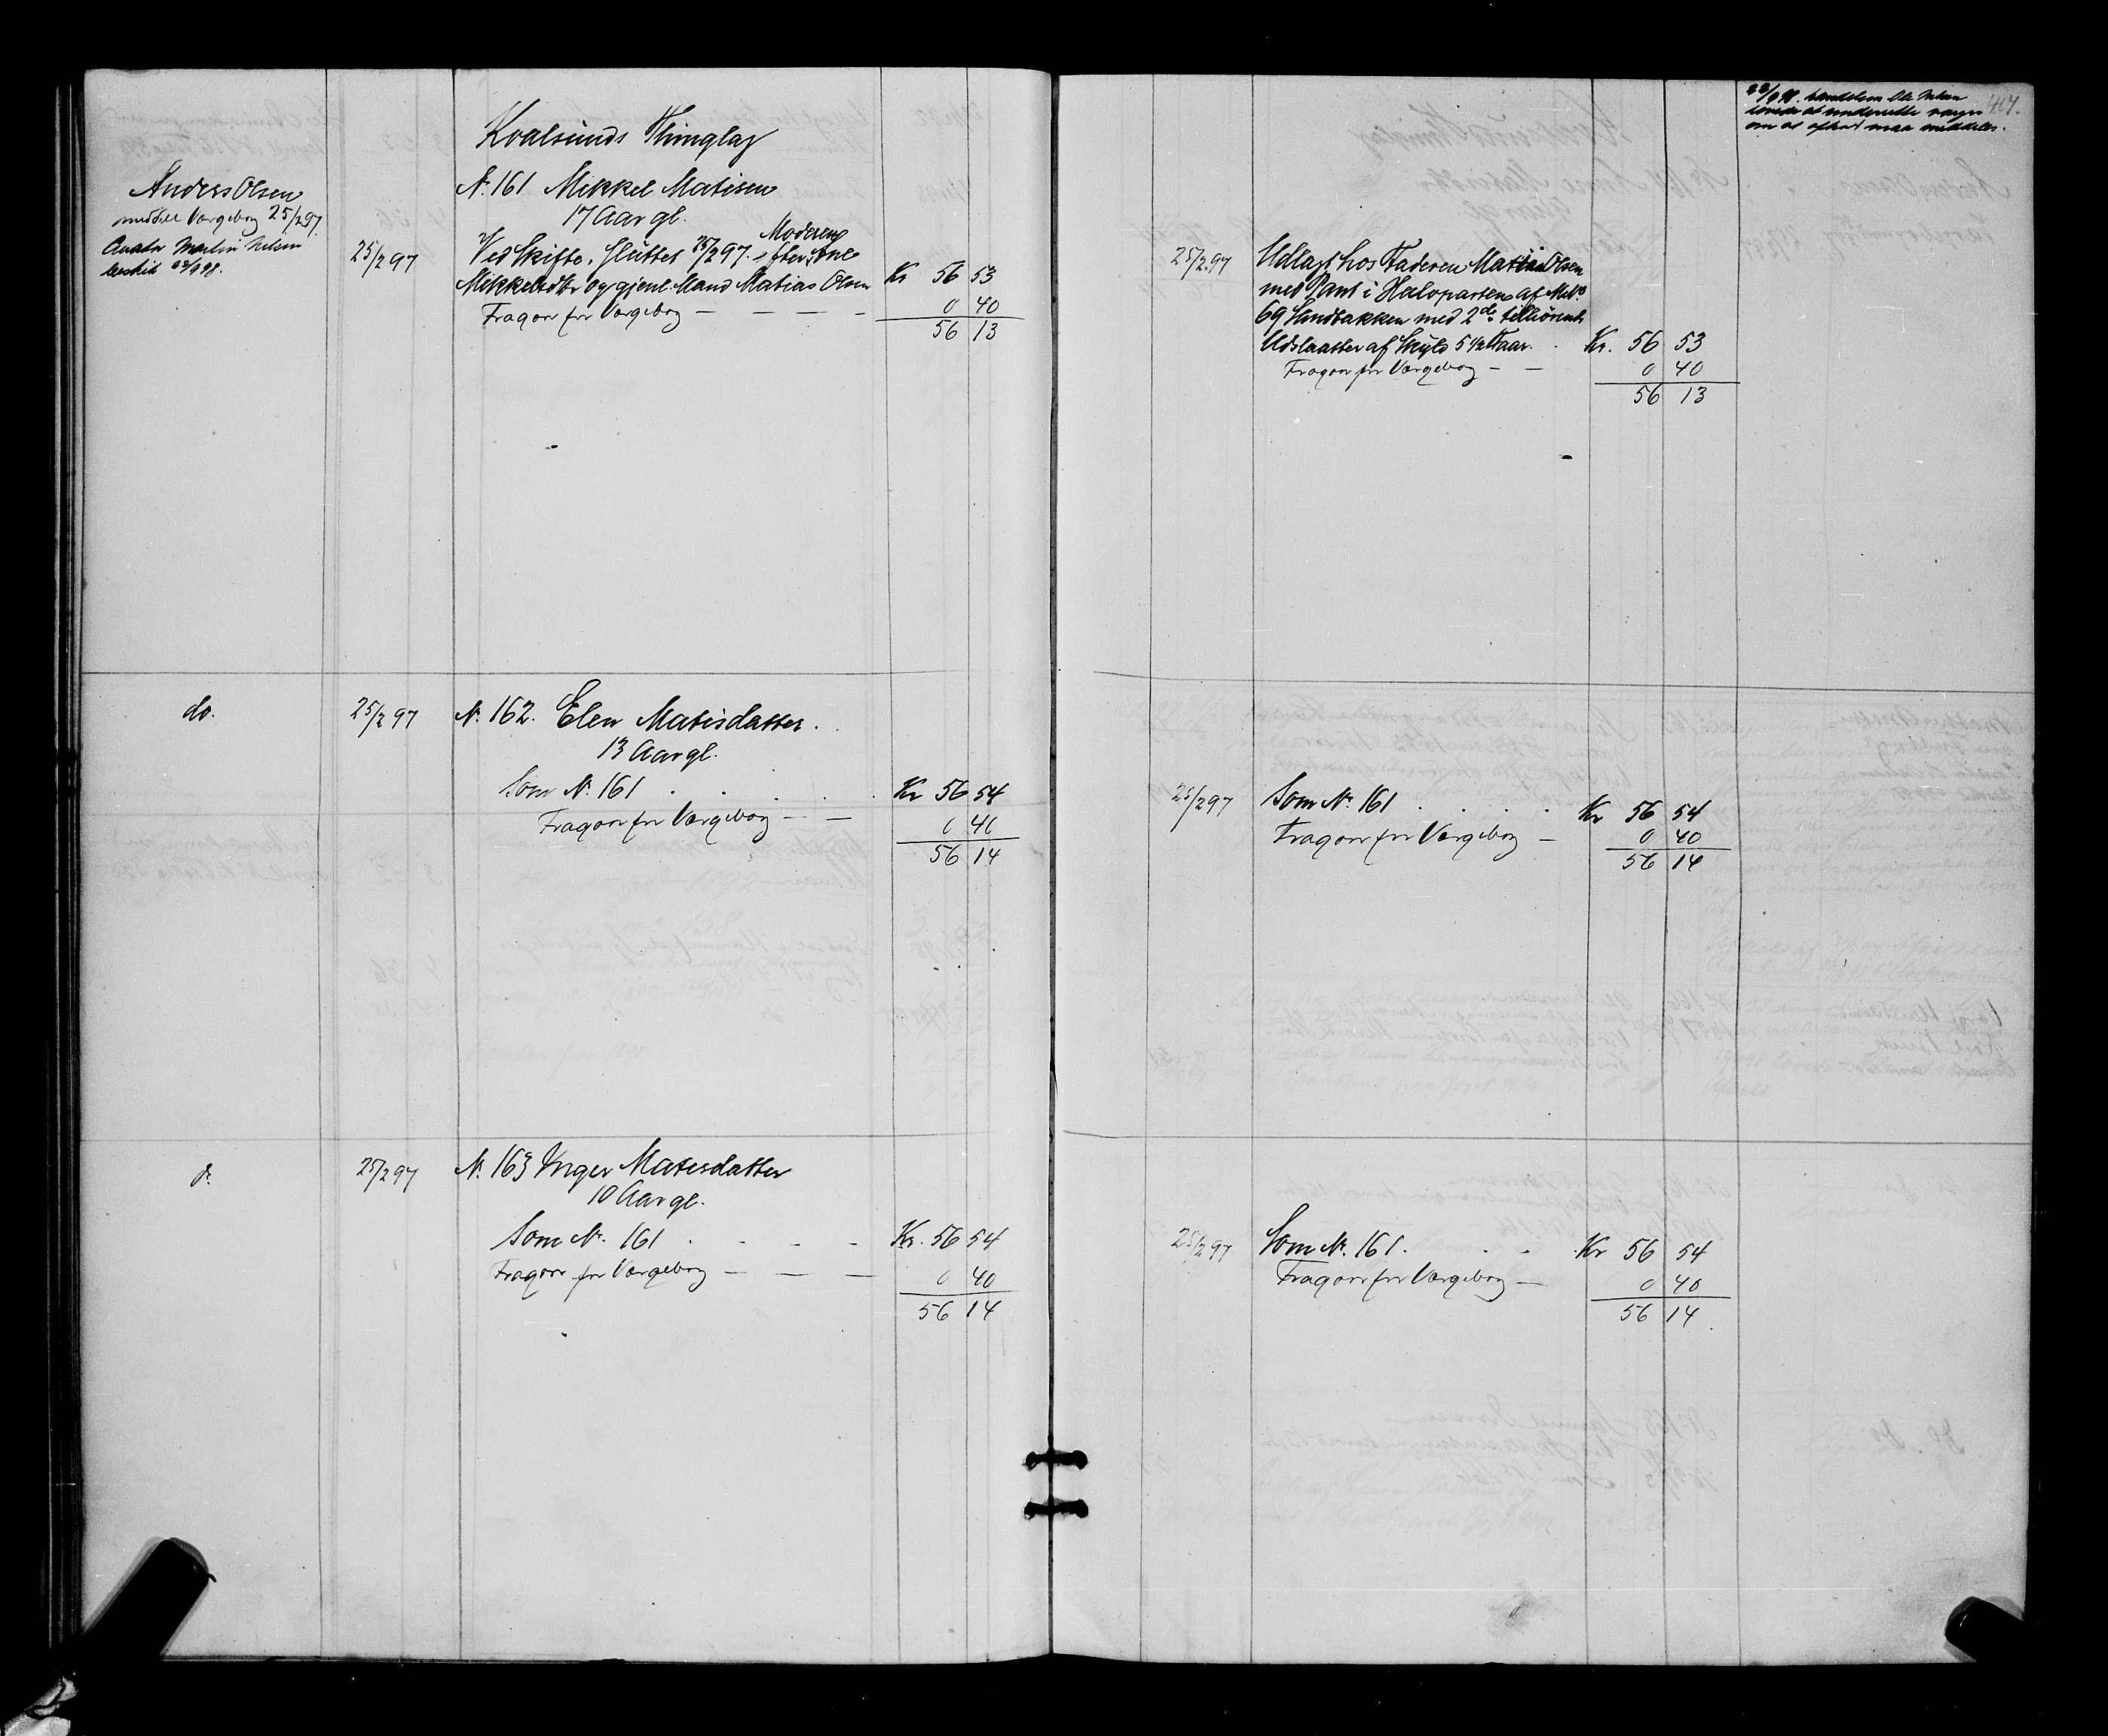 Kvalsunds Thinglag
Anders Olsen
meddelt Værgebog 25/2 97.
Curator Martin Nilsen
22/9 98.
25/2 97
N. 161 Mikkel Matisen
17 Aar gl.
Ved Skifte, sluttet 25/2 97. efter Moderen
Mikkelsdtr og gjenl. Mand Matias Olsen Kr 56 53
Fragaar for Værgebog — — — — 0 40
56 13
do. 25/2 97 N. 162. Elen Matisdatter.
13 Aar gl.
Som N. 161 . . . . . Kr 56 54
Fragaar for Værgebog — — 0 40
56 14
do 25/2 97 N. 163 Inger Matisdatter
10 Aar gl.
Som Nr. 161 . . . . Kr. 56 54
Fragaar for Værgebog — — — 0 40
56 14
407.
22/9 98.
om at maa meddeles.
25/2 97 Udlagt hos Faderen Matias Olsen
med Pant i Halvparten af Mtr
69 Sandbakken med 2de tilhørende
Udslaatter af Skyld 5 1/2 . Kr. 56 53
Fragaar for Værgebog — — 0 40
56 13
25/2 97 Som Nr. 161 . . . . Kr 56 54
Fragaar for Værgebog — 0 40
56 14
25/2 97 Som Nr. 161. . . Kr 56 54
Fragaar for Værgebog — 0 40
56 14